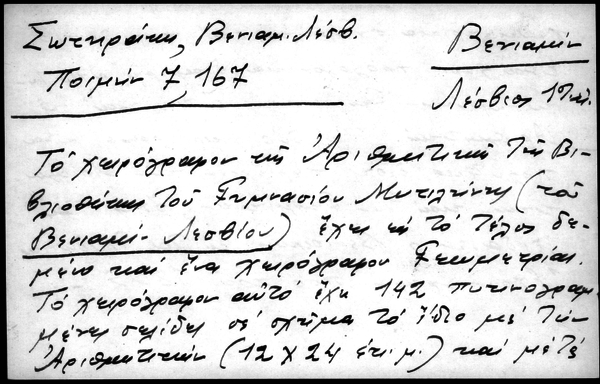 Σωτηράκη, Βενιαμ. Λέσβ.
Ποιμήν 7, 167
Βενιαμίν
Λέσβιος
Τό χειρόγραφον τῆς Ἀριθμητικῆς τῆς Βι-
βλιοθήκης τοῦ Γυμνασίου Μυτιλήνης (τοῦ
Βενιαμίν Λεσβίου) ἔχει εἰς τό τέλος δε-
μένο καί ἕνα χειρόγραφον Γεωμετρίας.
Τό χειρόγραφον αὐτό ἔχει 142 πυκνογραμ-
μένες σελίδες σέ σχῆμα τό ἴδιο μέ τήν
Ἀριθμητικήν (12 χ 24 ἑκ. μ.) καί μέ τέ